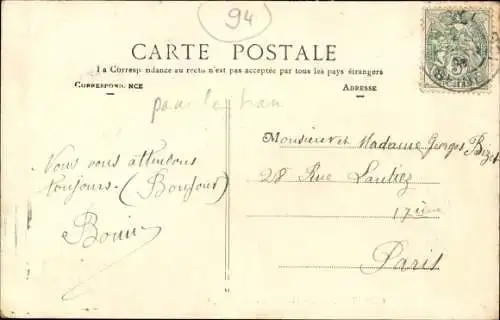 94
CARTE POSTALE
La Correspondance au recto n'est pas acceptée par tous les pays étrangers
CORRESPONDANCE
ADRESSE
pour le
Monsieur et Madame Georges Bizet
Nous vous attendons
toujours. (Bonjour)
28 Rue
17ième
Paris